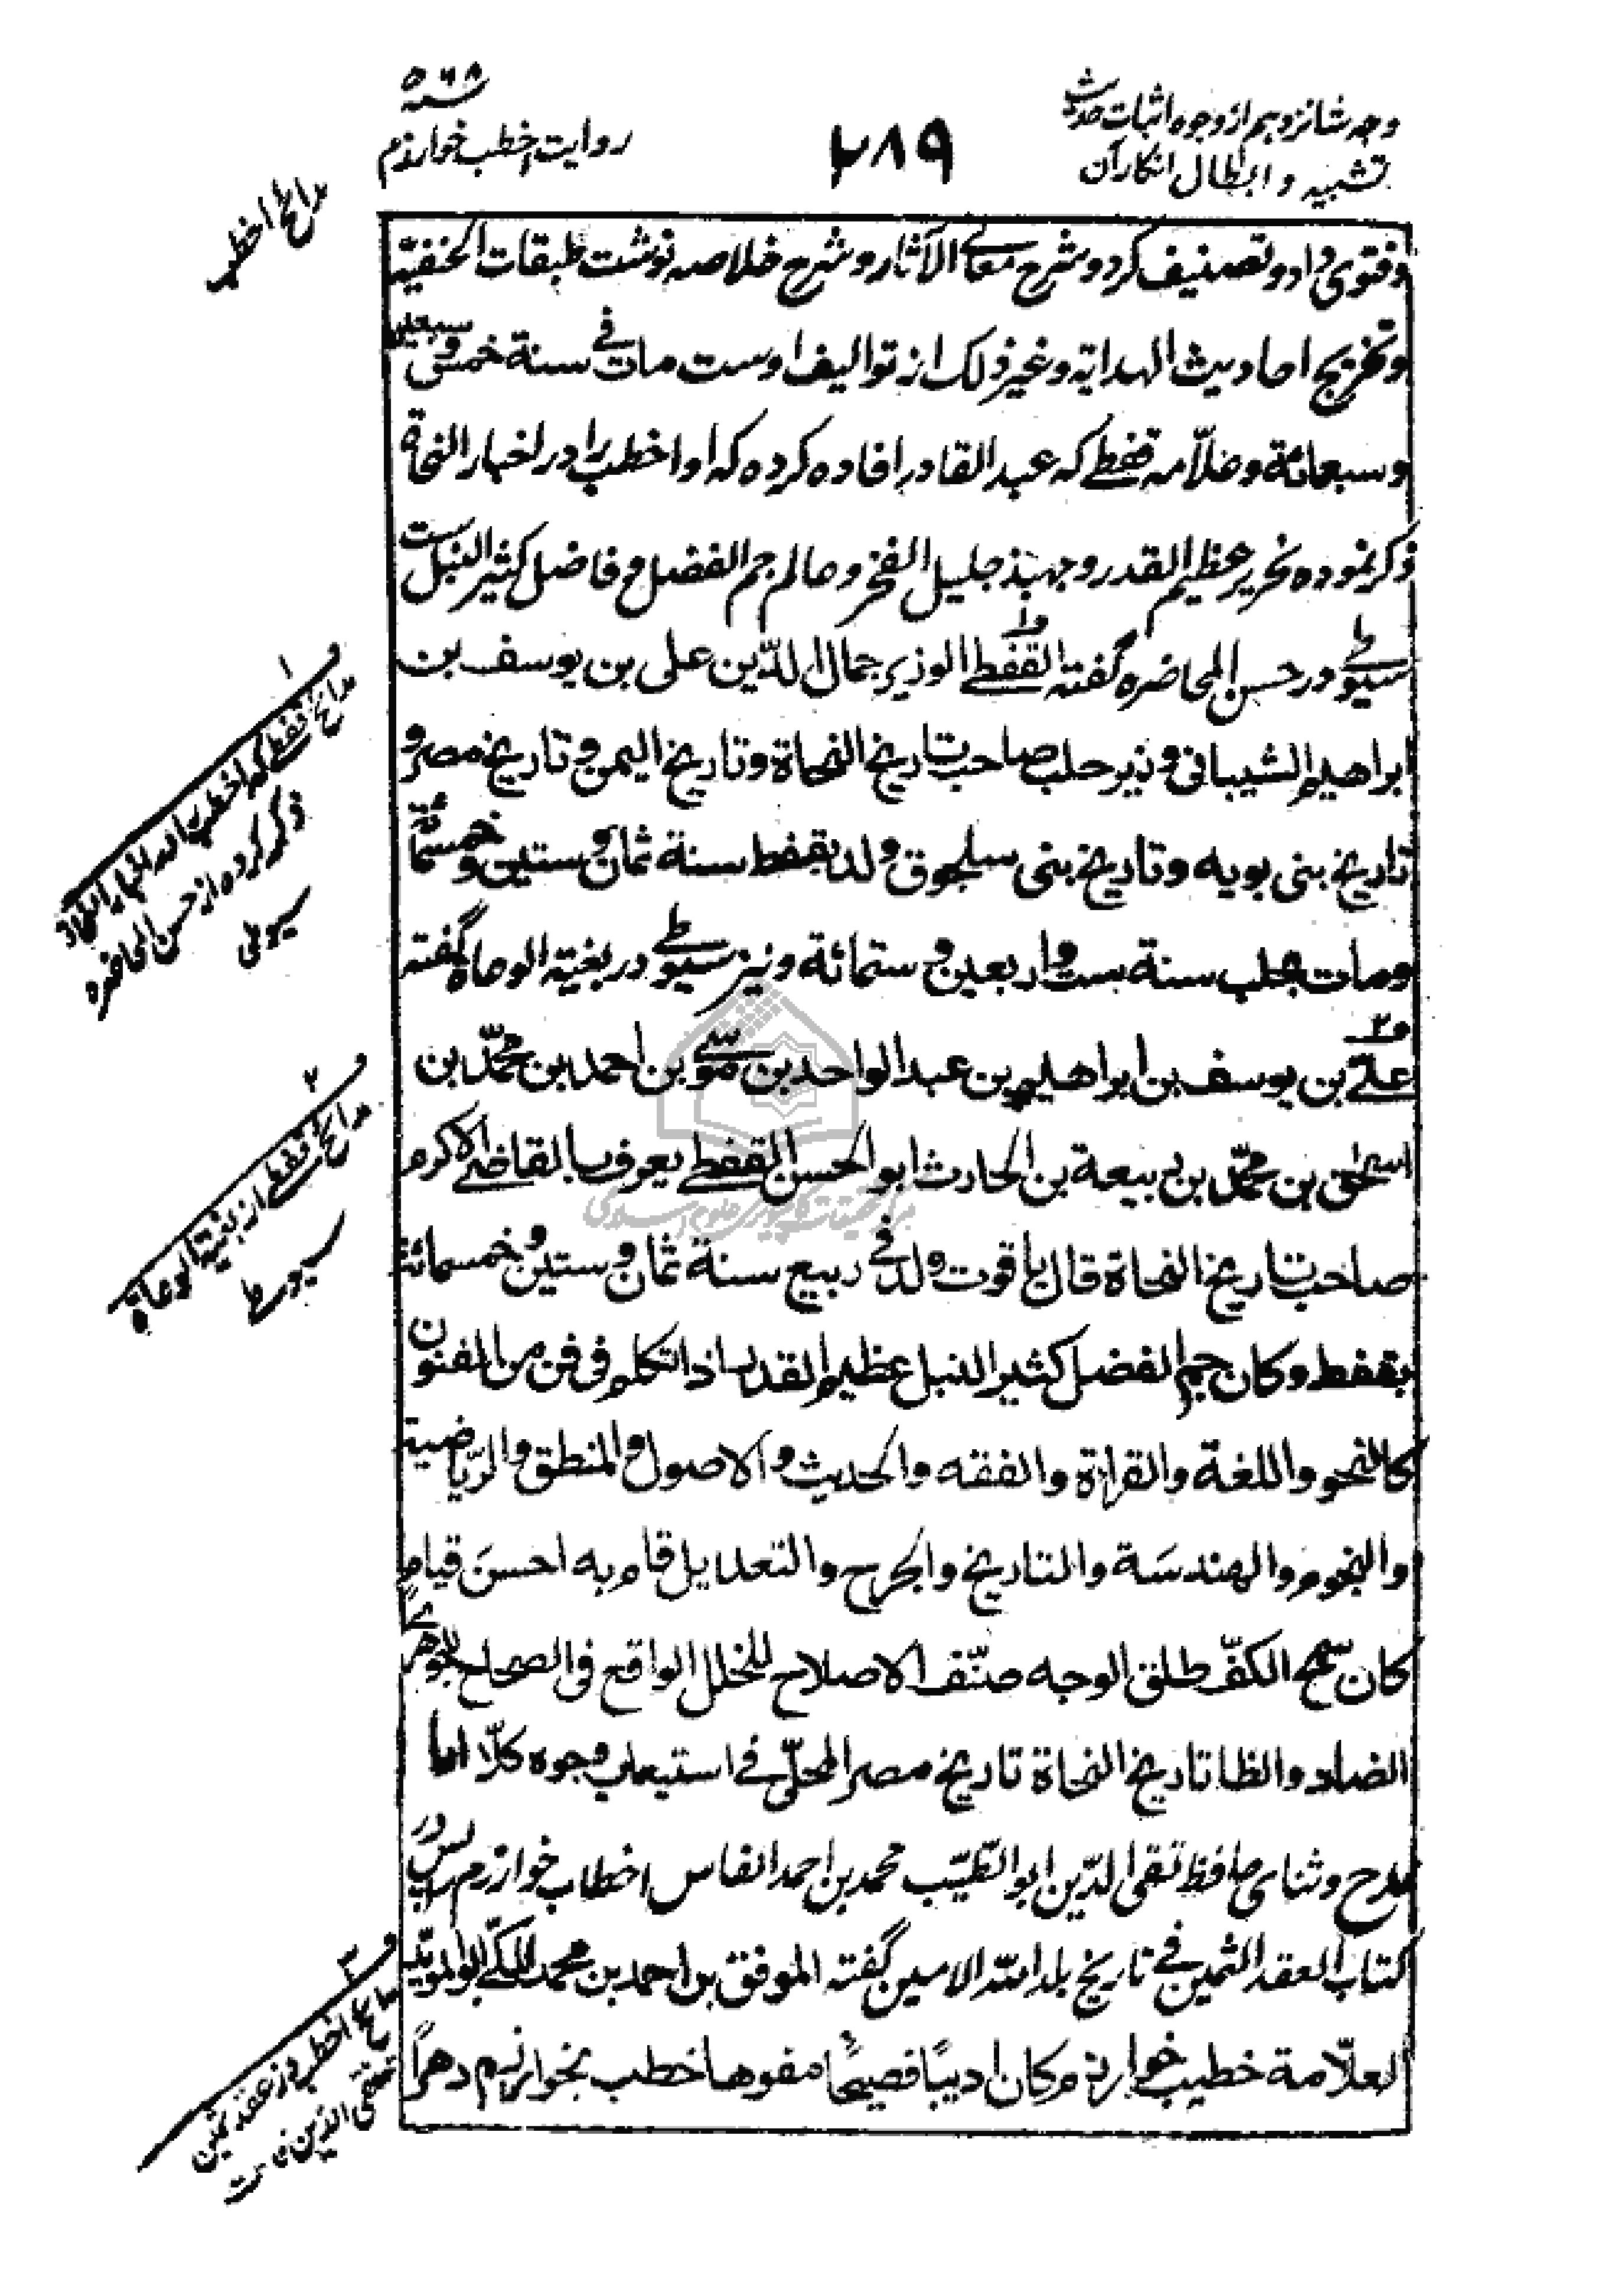 وجه شانزدهم از وجوه اثبات حدیث
تشبیه و ابطال انکار آن
۲۸۹
۵۶۸
روایت اخطب خوارزم
مدائح اخطب
وفتوی داد و تصنیف کرد و شرح معانی الآثار و شرح خلاصه نوشت طبقات الحنفیة
وتخریج احادیث الهدایة وغیر ذلک از توالیف اوست مات فی سنة خمس وسبعین
وسبعمائة وعلّامه قفطی که عبد القادر افاده کرده که او اخطب را در اخبار النحاة
ذکر نموده نحریر عظیم القدر و جهبذ جلیل الفخر و عالم جم الفضل و فاضل کثیر النبل ست
سیوطی در حسن المحاضره گفته القفطی الوزیر جمال الدّین علی بن یوسف بن
ابراهیم الشیبانی وزیر حلب صاحب تاریخ النحاة وتاریخ الیمن وتاریخ مصر و
تاریخ بنی بویه وتاریخ بنی سلجوق ولد بقفط سنة ثمان وستین وخمسمائة
ومات بحلب سنة ست واربعین و ستمائة ونیز سیوطی در بغیة الوعاة گفته
علی بن یوسف بن ابراهیم بن عبد الواحد بن موسی بن احمد بن محمّد بن
اسحق بن محمّد بن ربیعة بن الحارث ابو الحسن القفطی یعرف بالقاضی الاکرم
صاحب تاریخ النحاة قال یاقوت ولد فی ربیع سنة ثمان وستین وخمسمائة
بقفط وکان جم الفضل کثیر النبل عظیم القدر اذا تکلم فی فن من الفنون
کالنحو واللغة والقراءة والفقه والحدیث والاصول والمنطق والریاضیة
والنجوم والهندسَة والتاریخ والجرح والتعدیل قام به احسنَ قیام
کان سمح الکفّ طلق الوجه صنّف الاصلاح للخلل الواقع فی الصحاح للجوهری
الضاد والظا تاریخ النحاة تاریخ مصر المحلّی فی استیعاب وجوه کلّا اما
مدح وثنای حافظ تقی الدّین ابو الطّیّب محمد بن احمد الفاسی اخطب خوارزم را پس در
کتاب العقد الثمین فی تاریخ بلد اللّه الامین گفته الموفق بن احمد بن محمد المکّی ابو المویّد
العلّامة خطیب خوارزم کان ادیبًا فصیحًا مفوها خطب بخوارزم دهرًا
و ۱
مدائح قفطی که اخطب را در اخبار النحاة
ذکر کرده از حسن المحاضره
سیوطی
و ۲
مدائح قفطی از بغیة الوعاة
سیوطی
و ۳
مدائح اخطب از عقد ثمین
تقی الدّین فاسی